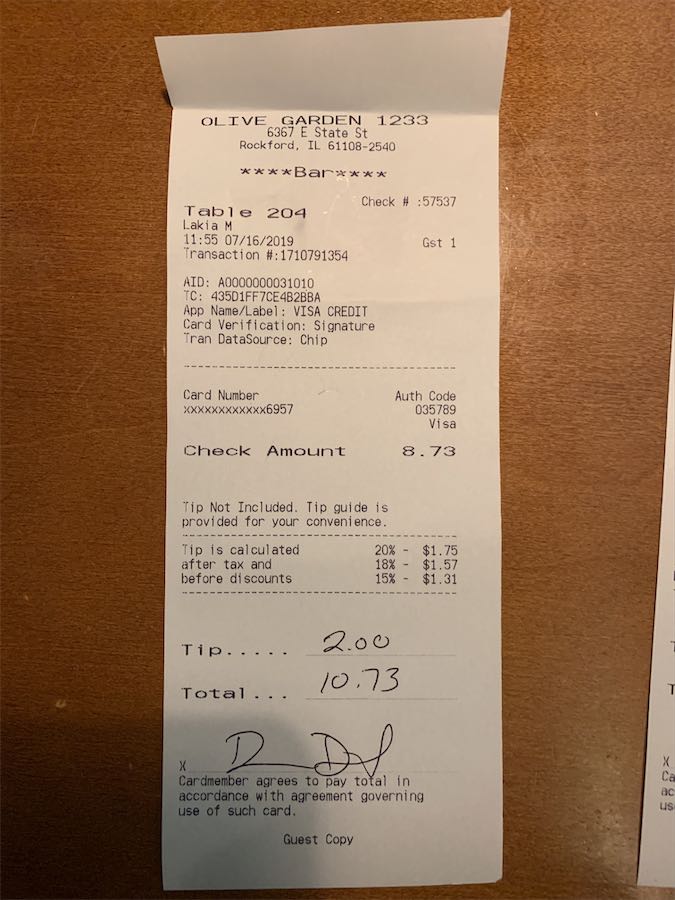 OLIVE GARDEN 1233
6367 E State St
Rockford, IL 61108-2540
****Bar****
Check # :57537
Table 204
Lakia M
11:55 07/16/2019 Gst 1
Transaction #:1710791354
AID: A0000000031010
TC: 435D1FF7CE4B2BBA
App Name/Label: VISA CREDIT
Card Verification: Signature
Tran DataSource: Chip
Card Number Auth Code
xxxxxxxxxxxx6957 035789
Visa
Check Amount 8.73
Tip Not Included. Tip guide is
provided for your convenience.
Tip is calculated 20% - $1.75
after tax and 18% - $1.57
before discounts 15% - $1.31
Tip..... 2.00
Total... 10.73
X
Cardmember agrees to pay total in
accordance with agreement governing
use of such card.
Guest Copy
X
Ca
ac
us